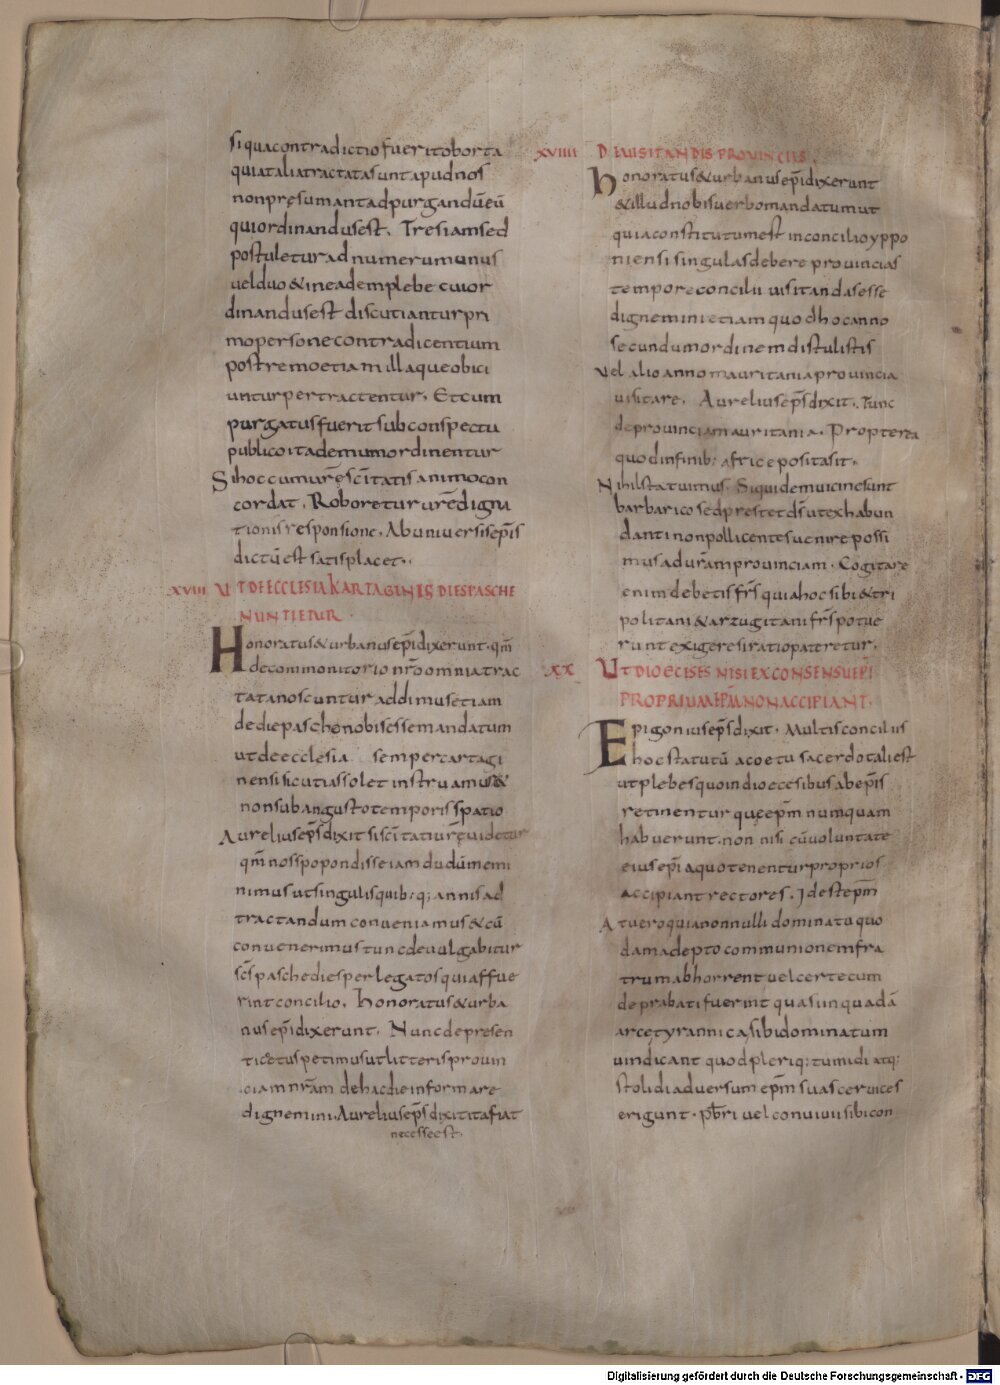 siqua contradictio fuerit oborta
quia talia tractata sunt apud nos
non presumant ad purgandū eū
qui ordinandus est. Tres iam sed
postuletur ad numerum unus
vel duo & in eadem plebe cui or
dinandus est discutiantur pri
mo persone contradicentium
postremo etiam illa que obici
untur pertractentur. Et cum
purgatus fuerit sub conspectu
publico ita demum ordinentur
Si hoc cum urę̄ sc̄itatis animo con
cordat. Roboretur urē digni
tionis responsione. Ab universis ep̄is
dictū est satis placet.
XVIII UT DE ECCLESIA KARTAGINIS DIES PASCHE
NUNTIETUR.
Honoratus & urbanus ep̄i dixerunt. qm̄
de commonitorio nr̄o omnia trac
tata noscuntur addimus etiam
de die pasche nobis esse mandatum
ut de ecclesia semper cartagi
nensi sicuti assolet instruamus &
non sub angusto temporis spatio
Aurelius ep̄s dixit si sc̄itati ur̄ę videtur
qm̄ nos spopondisse iam dudū memi
nimus ut singulis quib:q; annis ad
tractandum conveniamus & cū
convenerimus tunc devulgabitur
sc̄s pasche dies per legatos qui affue
rint concilio. Honoratus & urba
nus ep̄i dixerunt. Nunc de presen
ti cętus petimus ut litteris provin
ciam nr̄am de hac die informare
dignemini. Aurelius ep̄s dixit ita fiat
necesse est.
XVIIII DE VISITANDIS PROVINCIIS.
Honoratus & urbanus ep̄i dixerunt
& illud nobis verbo mandatum ut
quia constitutum est in concilio yppo
niensi singulas debere provincias
tempore concilii visitandas esse
dignemini etiam quod hoc anno
secundum ordinem distulistis
Vel alio anno mauritania provincia
visitare. Aurelius ep̄s dixit. Tunc
de provincia mauritania. Propterea
quod in finib: africe posita sit.
Nihil statuimus. Siquidem vicine sunt
barbarico sed prestet ds̄ ut ex habun
danti non pollicentes venire possi
mus ad ur̄am provinciam. Cogitare
enim debetis fr̄s quia hoc sibi & tri
politani & arzugitani fr̄s potue
runt exigere si ratio pateretur.
XX UT DIOECISES NISI EX CONSENSU EP̄I
PROPRIUM EP̄M NON ACCIPIANT.
Epigonius ep̄s dixit. Multis conciliis
hoc statutū a coetu sacerdotali est
ut plebes quo in dioecesibus ab ep̄is
retinentur quę ep̄m numquam
habuerunt. non nisi cū voluntate
eius ep̄i a quo tenentur proprios
accipiant rectores. Id est ep̄m
At vero quia nonnulli dominatu quo
dam adepto communionem fra
trum abhorrent vel certe cum
deprabati fuerint quasi in quadā
arce tyrannica sibi dominatum
vindicant quod pleriq; tumidi atq;
stolidi adversum ep̄m suas cervices
erigunt. pb̄ri vel conviviis sibi con
Digitalisierung gefördert durch die Deutsche Forschungsgemeinschaft - DFG